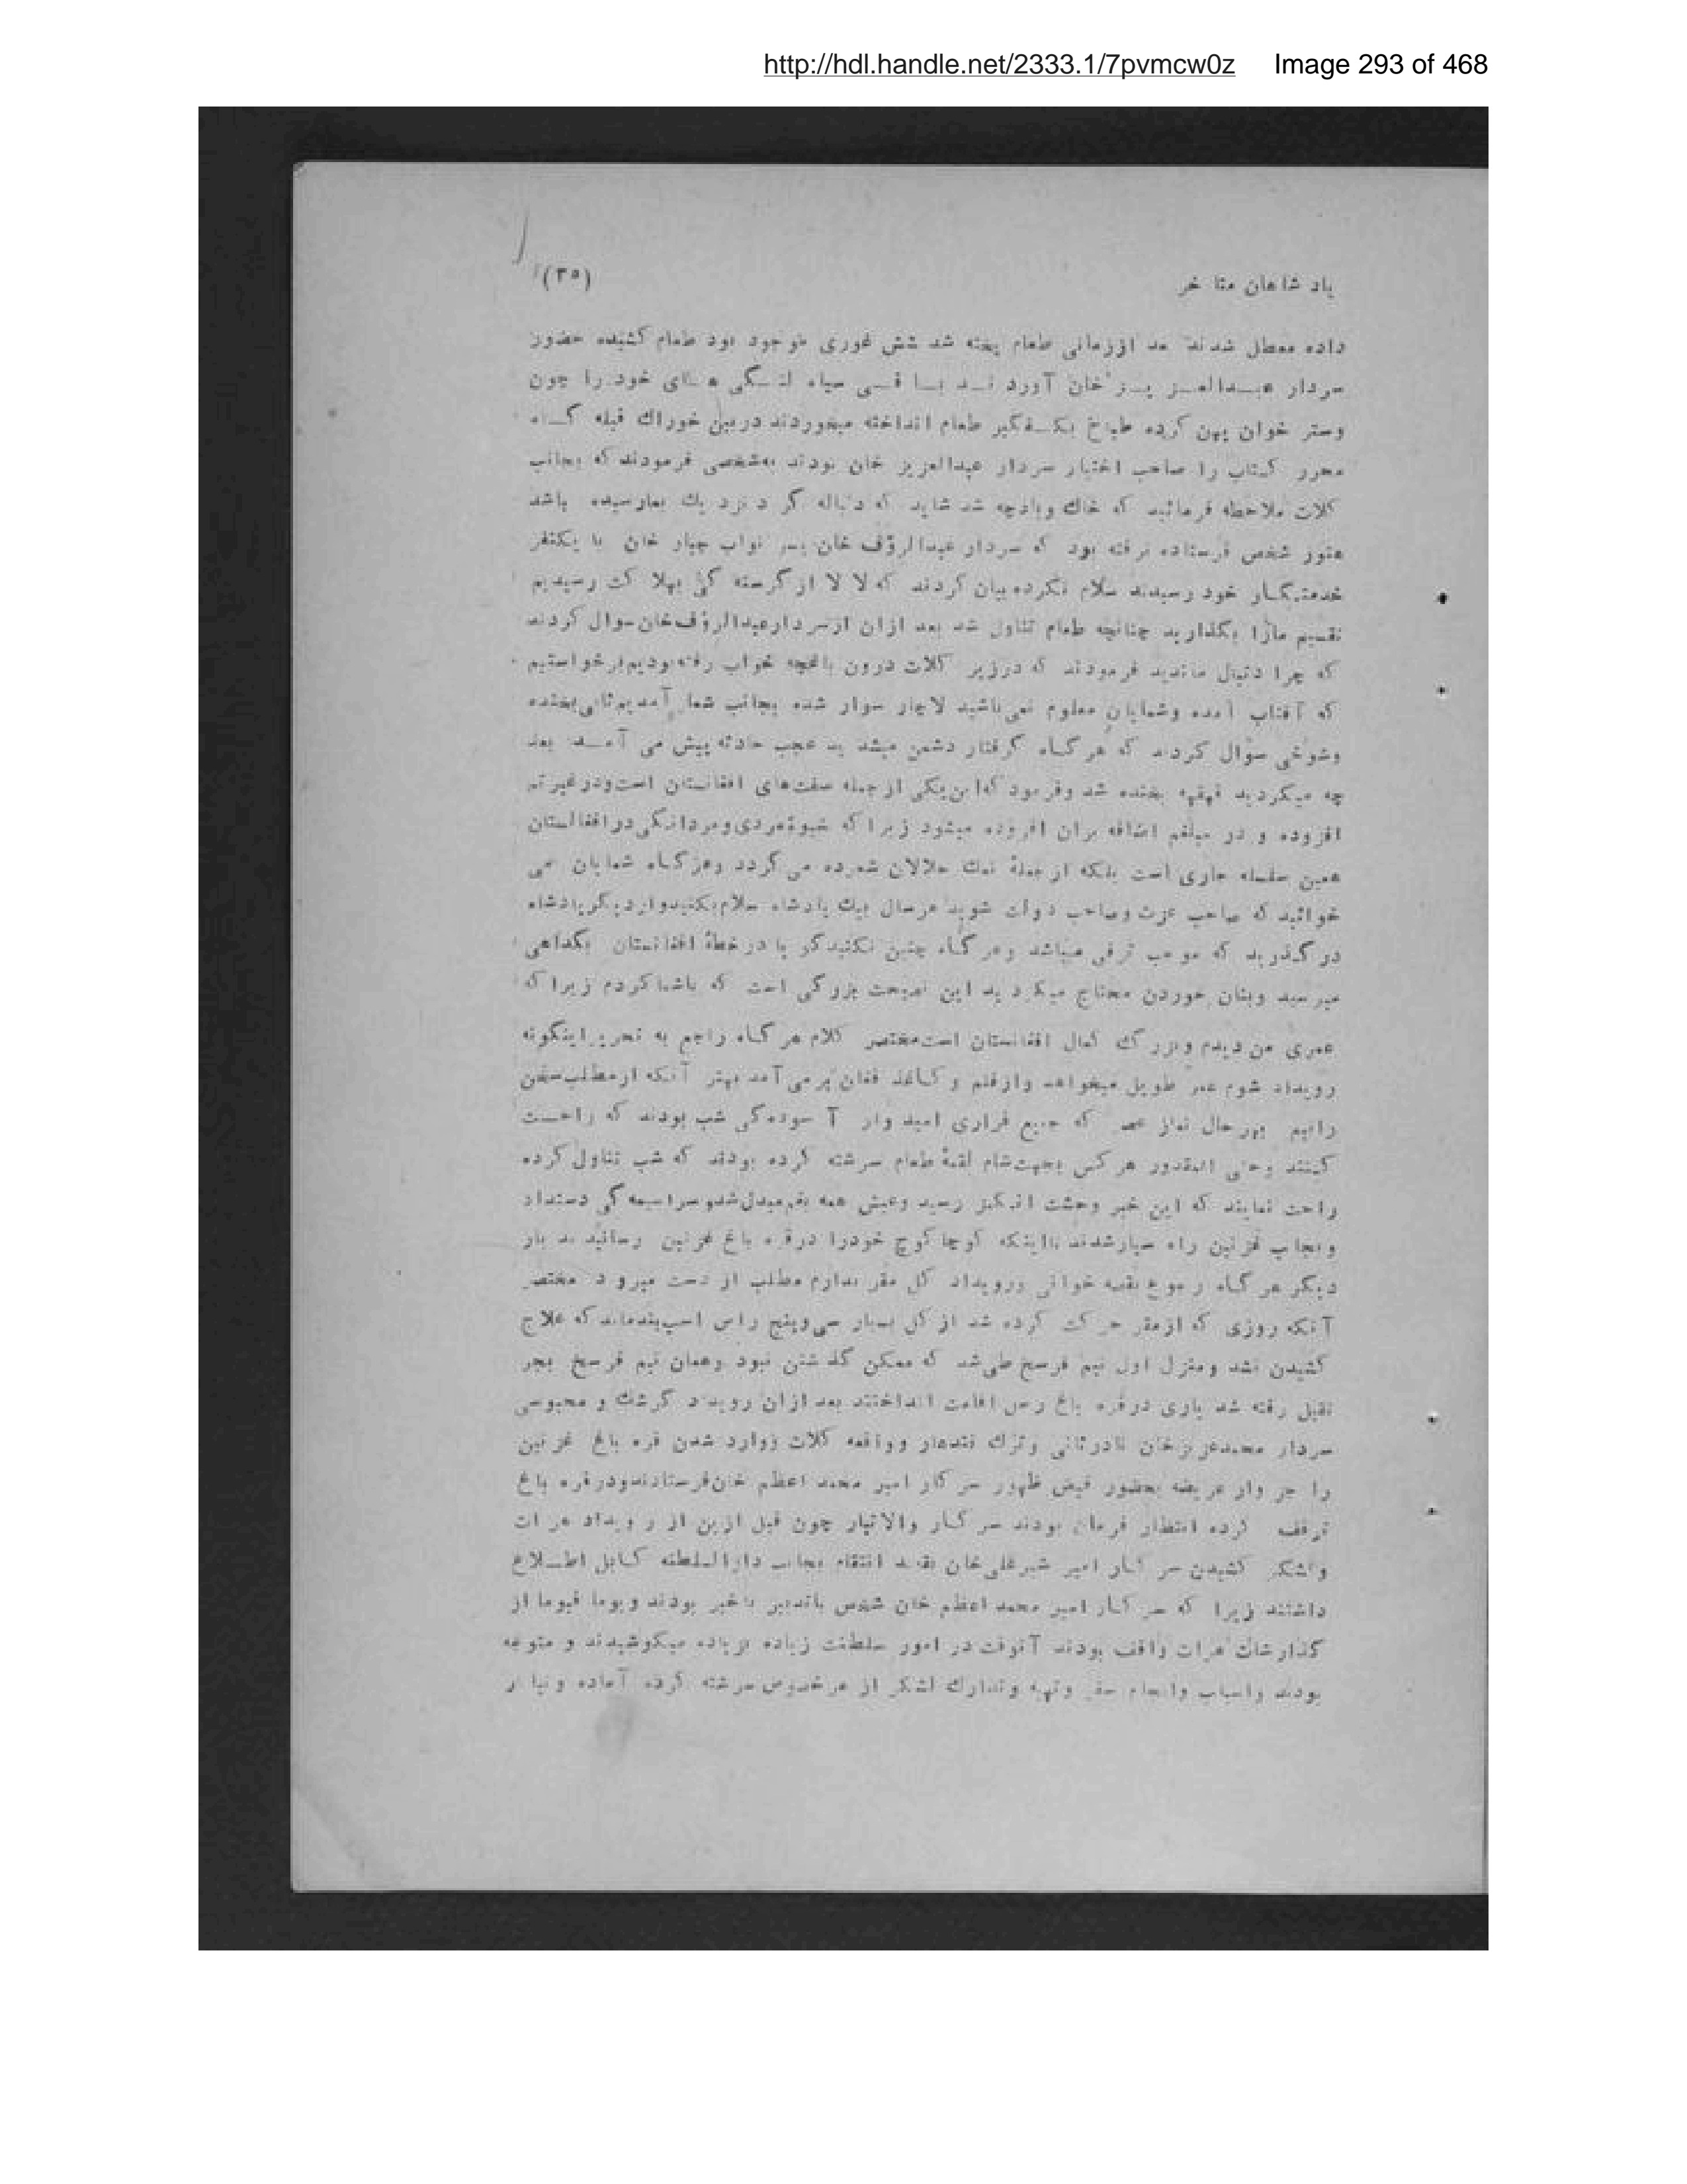 http://hdl.handle.net/2333.1/7pvmcw0z Image 293 of 468
پاد شاهان متا خر (۳۵)
داده معطل شدند بعد اززمانی طعام پخته شد شش غوری موجود بود طعام کشیده حضور
سردار عبدالعزیز خان آوردند باقی سیاه لنگی های خود را چون
دستر خوان پهن کرده طباخ بکفگیر طعام انداخته میخوردند دربین خوراك قبله گاه
محرر کتاب را صاحب اختیار سردار عبدالعزیز خان بودند بهشخصی فرمودند که بجانب
کلات ملاحظه فرمائید که خاك وبادچه شد شاید که دنباله گر د نزد يك بمارسیده باشد
هنوز شخص فرستاده نرفته بود که سردار عبدالرؤف خان پسر نواب جبار خان با یکنفر
خدمتگار خود رسیدند سلام نکرده بیان کردند که لا لا از گرسنه گی بهلا کت رسیدیم
تقسیم مارا بگذارید چنانچه طعام تناول شد بعد ازان ازسردارعبدالرؤف خان سوال کردند
که چرا دنبال ماندید فرمودند که درزیر کلات درون باغچه خواب رفته بودیم برخواستیم
که آفتاب آمده وشمایان معلوم نمی باشید لاچار سوار شده بجانب شما آمدیم ثانی بخنده
وشوخی سوال کردند که هر گاه گرفتار دشمن میشد ید عجب حادثه پیش می آمد بعد
چه میکردید قهقهه بخنده شد وفرمود که این یکی از جمله صفت های افغانستان است ودرغیرتم
افزوده و در مبلغم اضافه بران افزوده میشود زیرا که شیوهٔ مردی ومردانگی درافغانستان
همین سلسله جاری است بلکه از جملهٔ نمك حلالان شمرده می گردد وهرگاه شمایان می
خوائید که صاحب عزت وصاحب دولت شوید هرسال بيك پادشاه سلام بکنید واز دیگر پادشاه
در گذرید که موجب ترقی میباشد وهر گاه چنین نکنید گو یا در خطهٔ افغانستان بگداهی
میرسید وبنان خوردن محتاج میگر دید این نصیحت بزرگی است که باشما کردم زیرا که
عمری من دیدم وبزرگ کمال افغانستان است مختصر کلام هر گاه راجع به تحریر اینگونه
رویداد شوم عمر طویل میخواهد وازقلم و کاغذ فغان بر می آمد بهتر آنکه ازمطلب سخن
رانیم بهر حال نماز عصر که جمیع فراری امید وار آ سوده گی شب بودند که راحت
کنند وحتی المقدور هر کس بجهت شام لقمهٔ طعام سرشته کرده بودند که شب تناول کرده
راحت نمایند که این خبر وحشت انگیز رسید وعیش همه بغم مبدل شدو سراسیمه گی دستداد
وبجانب غزنین راه سپارشدند تااینکه کوچا کوچ خودرا درقره باغ غزنین رسانید ند بار
دیگر هر گاه رجوع بقصه خوانی ورویداد کل مقر بدارم مطلب از دست میرو د مختصر
آنکه روزی که ازمقر حرکت کرده شد از گل بسیار سی وپنج راس اسپ بندماند که علاج
کشیدن نشد ومنزل اول نیم فرسخ طی شد که ممکن گذشتن نبود وهمان نیم فرسخ بجر
ثقیل رفته شد باری درقره باغ رحل اقامت انداختند بعد ازان رویداد گرشك و محبوسی
سردار محمدعزیزخان نادرثانی وترك قندهار وواقعه کلات ووارد شدن قره باغ غزنین
را جز وار عریضه بحضور فیض ظهور سر کار امیر محمد اعظم خان فرستادند ودر قره باغ
توقف کرده انتظار فرمان بودند سر کار والاتبار چون قبل ازین از ر ویداد هر ات
ولشکر کشیدن سر کار امیر شیرعلی خان بقصد انتقام بجانب دارالسلطنه کابل اطلاع
داشتند زیرا که سر کار امیر محمد اعظم خان شخص باتدبیر باخبر بودند ویوما فیوما از
گذارشات هرات واقف بودند آنوقت در امور سلطنت زیاده برزیاده میکوشیدند و متوجه
بودند واسباب وانجام سفر وتهیه وتدارك لشکر از هرخصوص سرشته کرده آماده وتیا ر